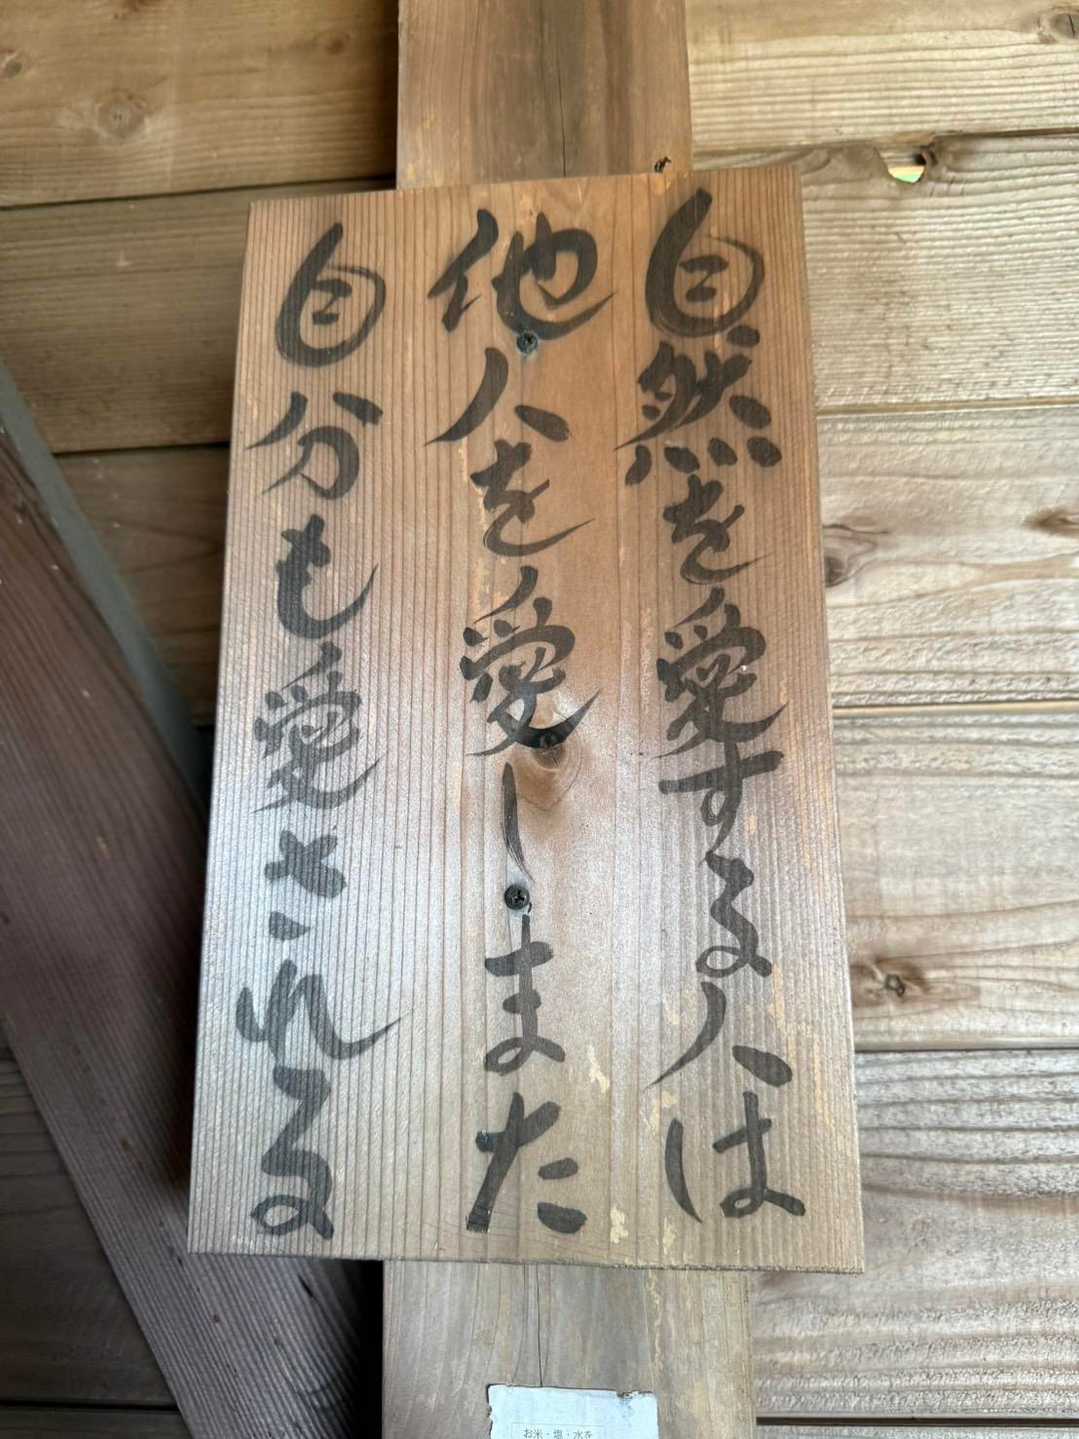 自然を愛する人は
他人を愛しまた
自分も愛される
お米・塩・水を